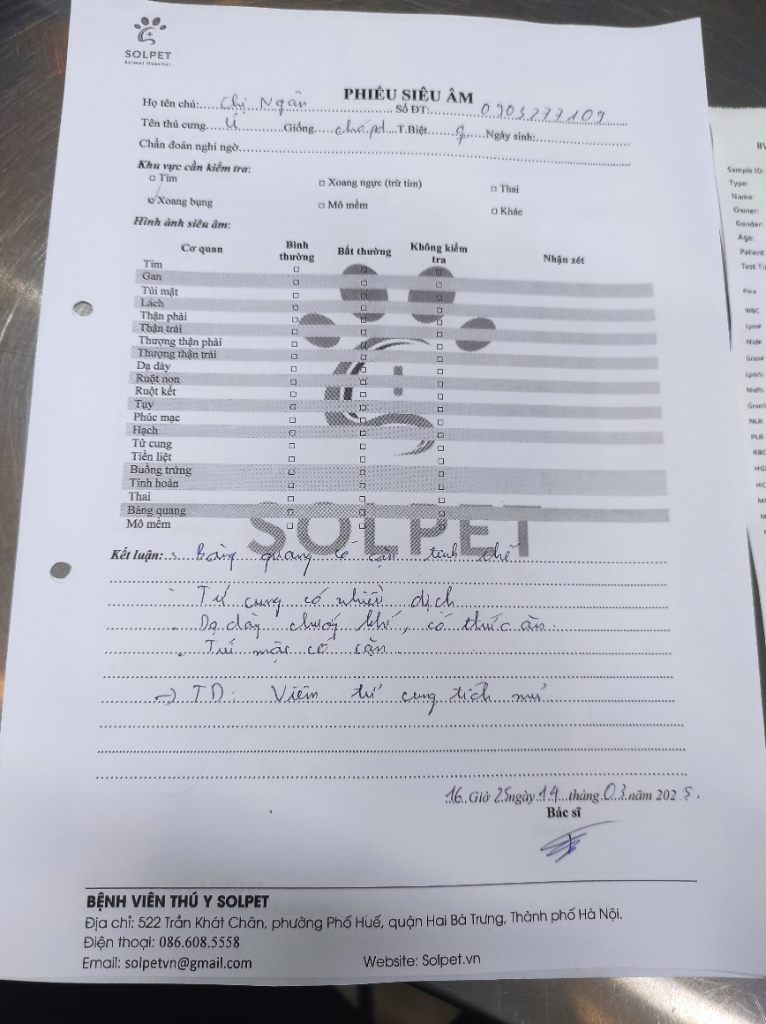 SOLPET
Animal Hospital
PHIẾU SIÊU ÂM
Họ tên chủ: Chị Ngân Số ĐT: 0903277109
Tên thú cưng Ú Giống chó pd T.Biệt ♀ Ngày sinh:
Chẩn đoán nghi ngờ
Khu vực cần kiểm tra:
□ Tim □ Xoang ngực (trừ tim) □ Thai
☑ Xoang bụng □ Mô mềm □ Khác
Hình ảnh siêu âm:
Cơ quan Bình thường Bất thường Không kiểm tra Nhận xét
Tim □ □ □
Gan □ □ □
Túi mật □ □ □
Lách □ □ □
Thận phải □ □ □
Thận trái □ □ □
Thượng thận phải □ □ □
Thượng thận trái □ □ □
Dạ dày □ □ □
Ruột non □ □ □
Ruột kết □ □ □
Tụy □ □ □
Phúc mạc □ □ □
Hạch □ □ □
Tử cung □ □ □
Tiền liệt □ □ □
Buồng trứng □ □ □
Tinh hoàn □ □ □
Thai □ □ □
Bàng quang □ □ □
Mô mềm □ □ □
SOLPET
Kết luận: - Bàng quang có cặn tinh thể
- Tử cung có nhiều dịch
- Dạ dày chướng khí, có thức ăn.
- Túi mật có cặn
→ TD: Viêm tử cung tích mủ
16 Giờ 25 ngày 14 tháng 03 năm 2025.
Bác sĩ
BỆNH VIÊN THÚ Y SOLPET
Địa chỉ: 522 Trần Khát Chân, phường Phố Huế, quận Hai Bà Trưng, Thành phố Hà Nội.
Điện thoại: 086.608.5558
Email: solpetvn@gmail.com Website: Solpet.vn
BV
Sample ID:
Type:
Name:
Owner:
Gender:
Age:
Patient
Test Ti
Para
WBC
Lym#
Mid#
Gran#
Lym%
Mid%
Gran%
NLR
PLR
RBC
HG
HC
M
M